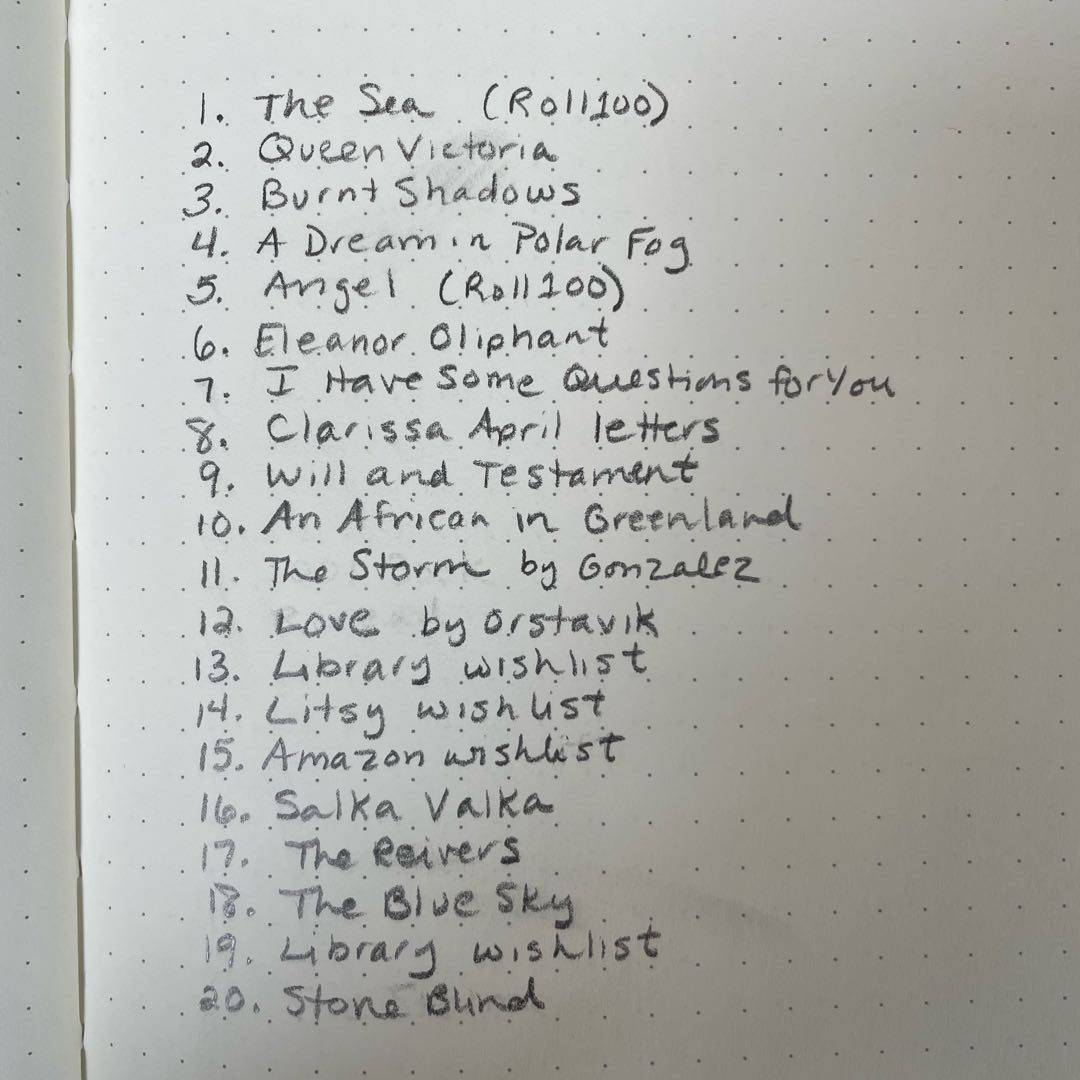 1. The Sea (Roll100)
2. Queen Victoria
3. Burnt Shadows
4. A Dream in Polar Fog
5. Angel (Roll100)
6. Eleanor Oliphant
7. I Have Some Questions for You
8. Clarissa April letters
9. Will and Testament
10. An African in Greenland
11. The Storm by Gonzalez
12. Love by Orstavik
13. Library wishlist
14. Litsy wishlist
15. Amazon wishlist
16. Salka Valka
17. The Reivers
18. The Blue Sky
19. Library wishlist
20. Stone Blind